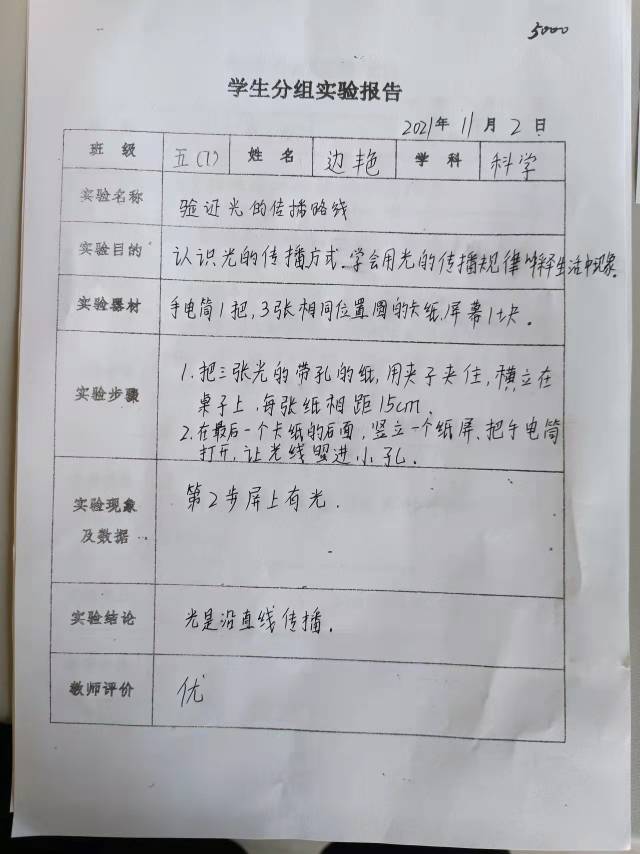 5000
学生分组实验报告
2021年 11月 2日
班 级 五(7) 姓 名 边艳 学 科 科学
实验名称 验证光的传播路线
实验目的 认识光的传播方式、学会用光的传播规律解释生活中现象
实验器材 手电筒1把,3张相同位置圆的卡纸、屏幕1块。
实验步骤
1.把三张光的带孔的纸,用夹子夹住,横立在
桌子上,每张纸相距15cm.
2.在最后一个卡纸的后面,竖立一个纸屏、把手电筒
打开,让光线照进小孔.
实验现象
及数据
第2步屏上有光.
实验结论 光是沿直线传播.
教师评价 优